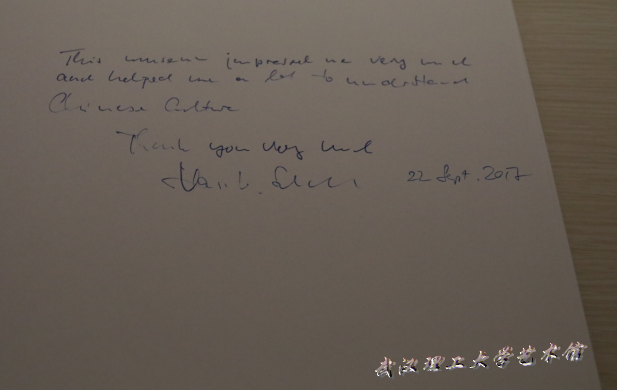 This museum impressed me very much
and helped me a lot to understand
Chinese Culture
Thank you very much
22 Sept. 2017
武汉理工大学艺术馆